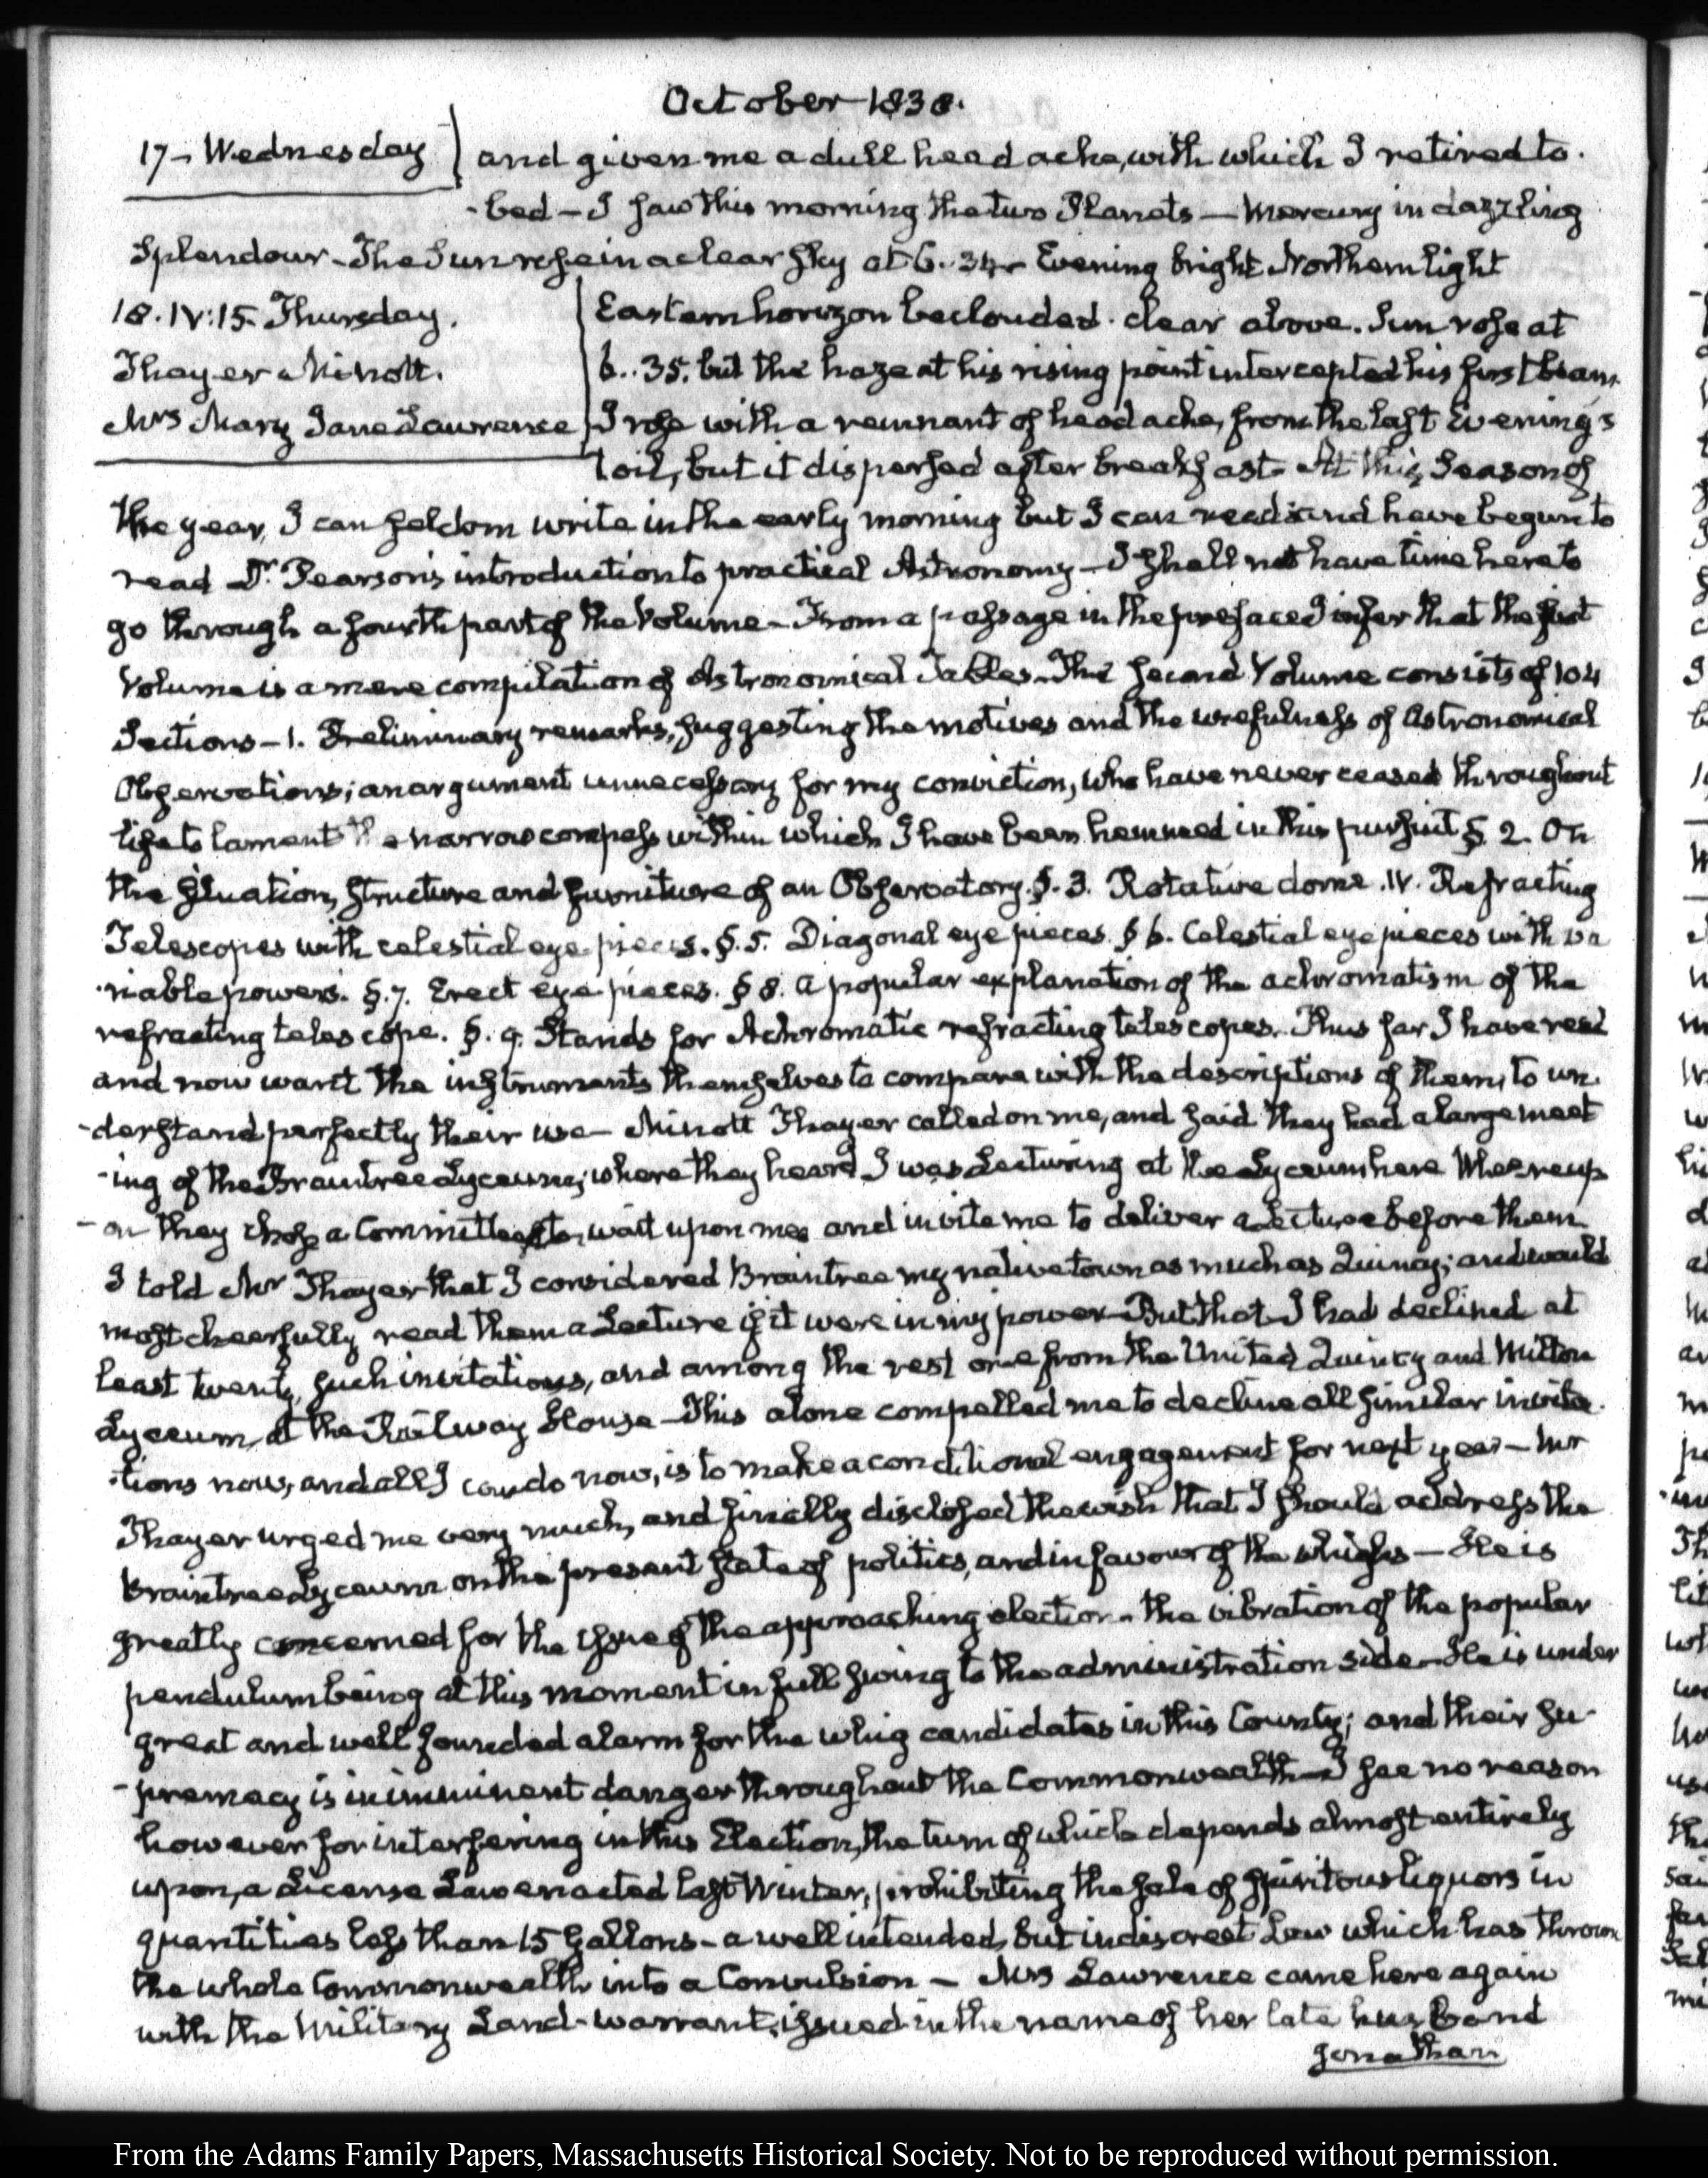 October 1838.
17. Wednesday
and given me a dull head ache, with which I retired to
bed – I saw this morning the two Planets – Mercury in dazzling
Splendour – The Sun rose in a clear sky at 6. 34 – Evening bright Northern light
18. IV:15. Thursday.
Thayer Minott.
Mrs Mary Jane Lawrence
Eastern horizon beclouded. clear above. Sun rose at
6..35. but the haze at his rising point intercepted his first beam.
I rose with a remnant of head ache, from the last Evening's
toil, but it dispersed after breakfast – At this Season of
the year, I can seldom write in the early morning but I can read and have begun to
read Dr. Pearson's introduction to practical Astronomy – I shall not have time here to
go through a fourth part of the Volume – From a passage in the preface I infer that the first
Volume is a mere compilation of Astronomical Tables – The second Volume consists of 104
Sections – 1. Preliminary remarks, suggesting the motives and the usefulness of Astronomical
Observations; an argument unnecessary for my conviction, who have never ceased throughout
life to lament the narrow compass within which I have been hemmed in this pursuit § 2. On
the situation, structure and furniture of an Observatory. §. 3. Rotative dome. IV. Refracting
Telescopes with celestial eye-pieces. §. 5. Diagonal eye pieces. § 6. Celestial eye pieces with va
-riable powers. §. 7. Erect eye-pieces. § 8. a popular explanation of the achromatism of the
refracting telescope. §. 9. Stands for Achromatic refracting telescopes. Thus far I have read
and now want the instruments themselves to compare with the descriptions of them, to un
-derstand perfectly their use – Minott Thayer called on me, and said they had a large meet
-ing of the Braintree Lyceum; where they heard I was Lecturing at the Lyceum here Whereup
-on they chose a Committee to wait upon me and invite me to deliver a Lecture before them
I told Mr Thayer that I considered Braintree my native town as much as Quincy; and would
most cheerfully read them a Lecture if it were in my power – But that I had declined at
least twenty such invitations, and among the rest one from the United Quincy and Milton
Lyceum, at the Railway House – This alone compelled me to decline all similar invita
-tions now, and all I can do now, is to make a conditional engagement for next year – Mr
Thayer urged me very much, and finally disclosed the wish that I should address the
Braintree Lyceum on the present state of politics, and in favour of the whigs – He is
greatly concerned for the issue of the approaching election – the vibration of the popular
pendulum being at this moment in full swing to the administration side – He is under
great and well founded alarm for the whig candidates in this County; and their su
-premacy is in imminent danger throughout the Commonwealth – I see no reason
however for interfering in this Election, the turn of which depends almost entirely
upon, a License Law enacted last Winter, prohibiting the sale of spiritous liquors in
quantities less than 15 Gallons – a well intended, but indiscreet Law which has thrown
the whole Commonwealth into a Convulsion – Mrs Lawrence came here again
with the Military Land-warrant, issued in the name of her late husband
Jonathan
From the Adams Family Papers, Massachusetts Historical Society. Not to be reproduced without permission.